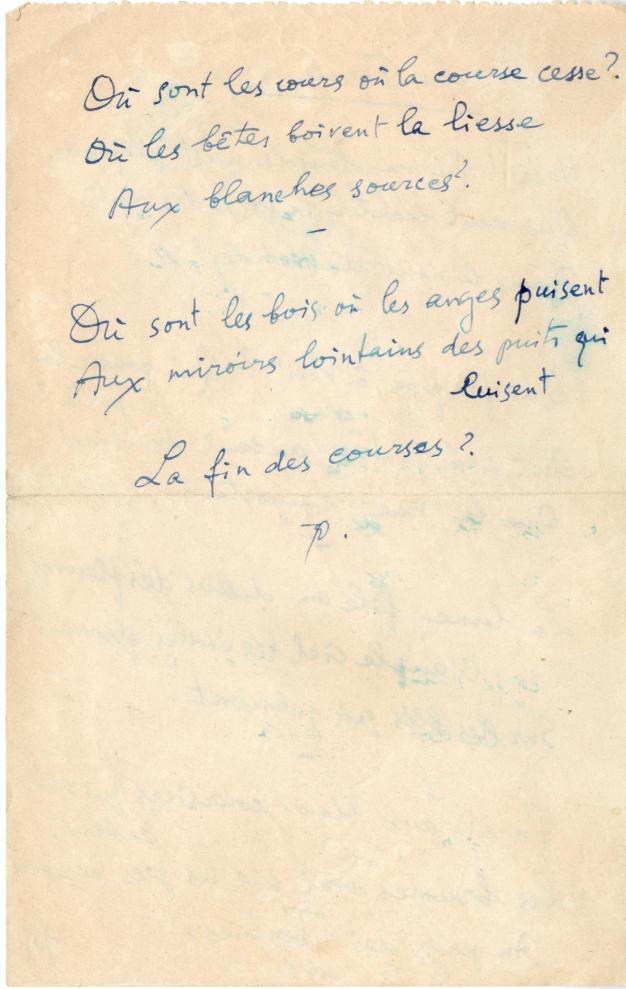 Où sont les cours où la course cesse ?
Où les bêtes boivent la liesse
Aux blanches sources ?
Où sont les bois où les anges puisent
Aux miroirs lointains des puits qui
luisent
La fin des courses ?
p.